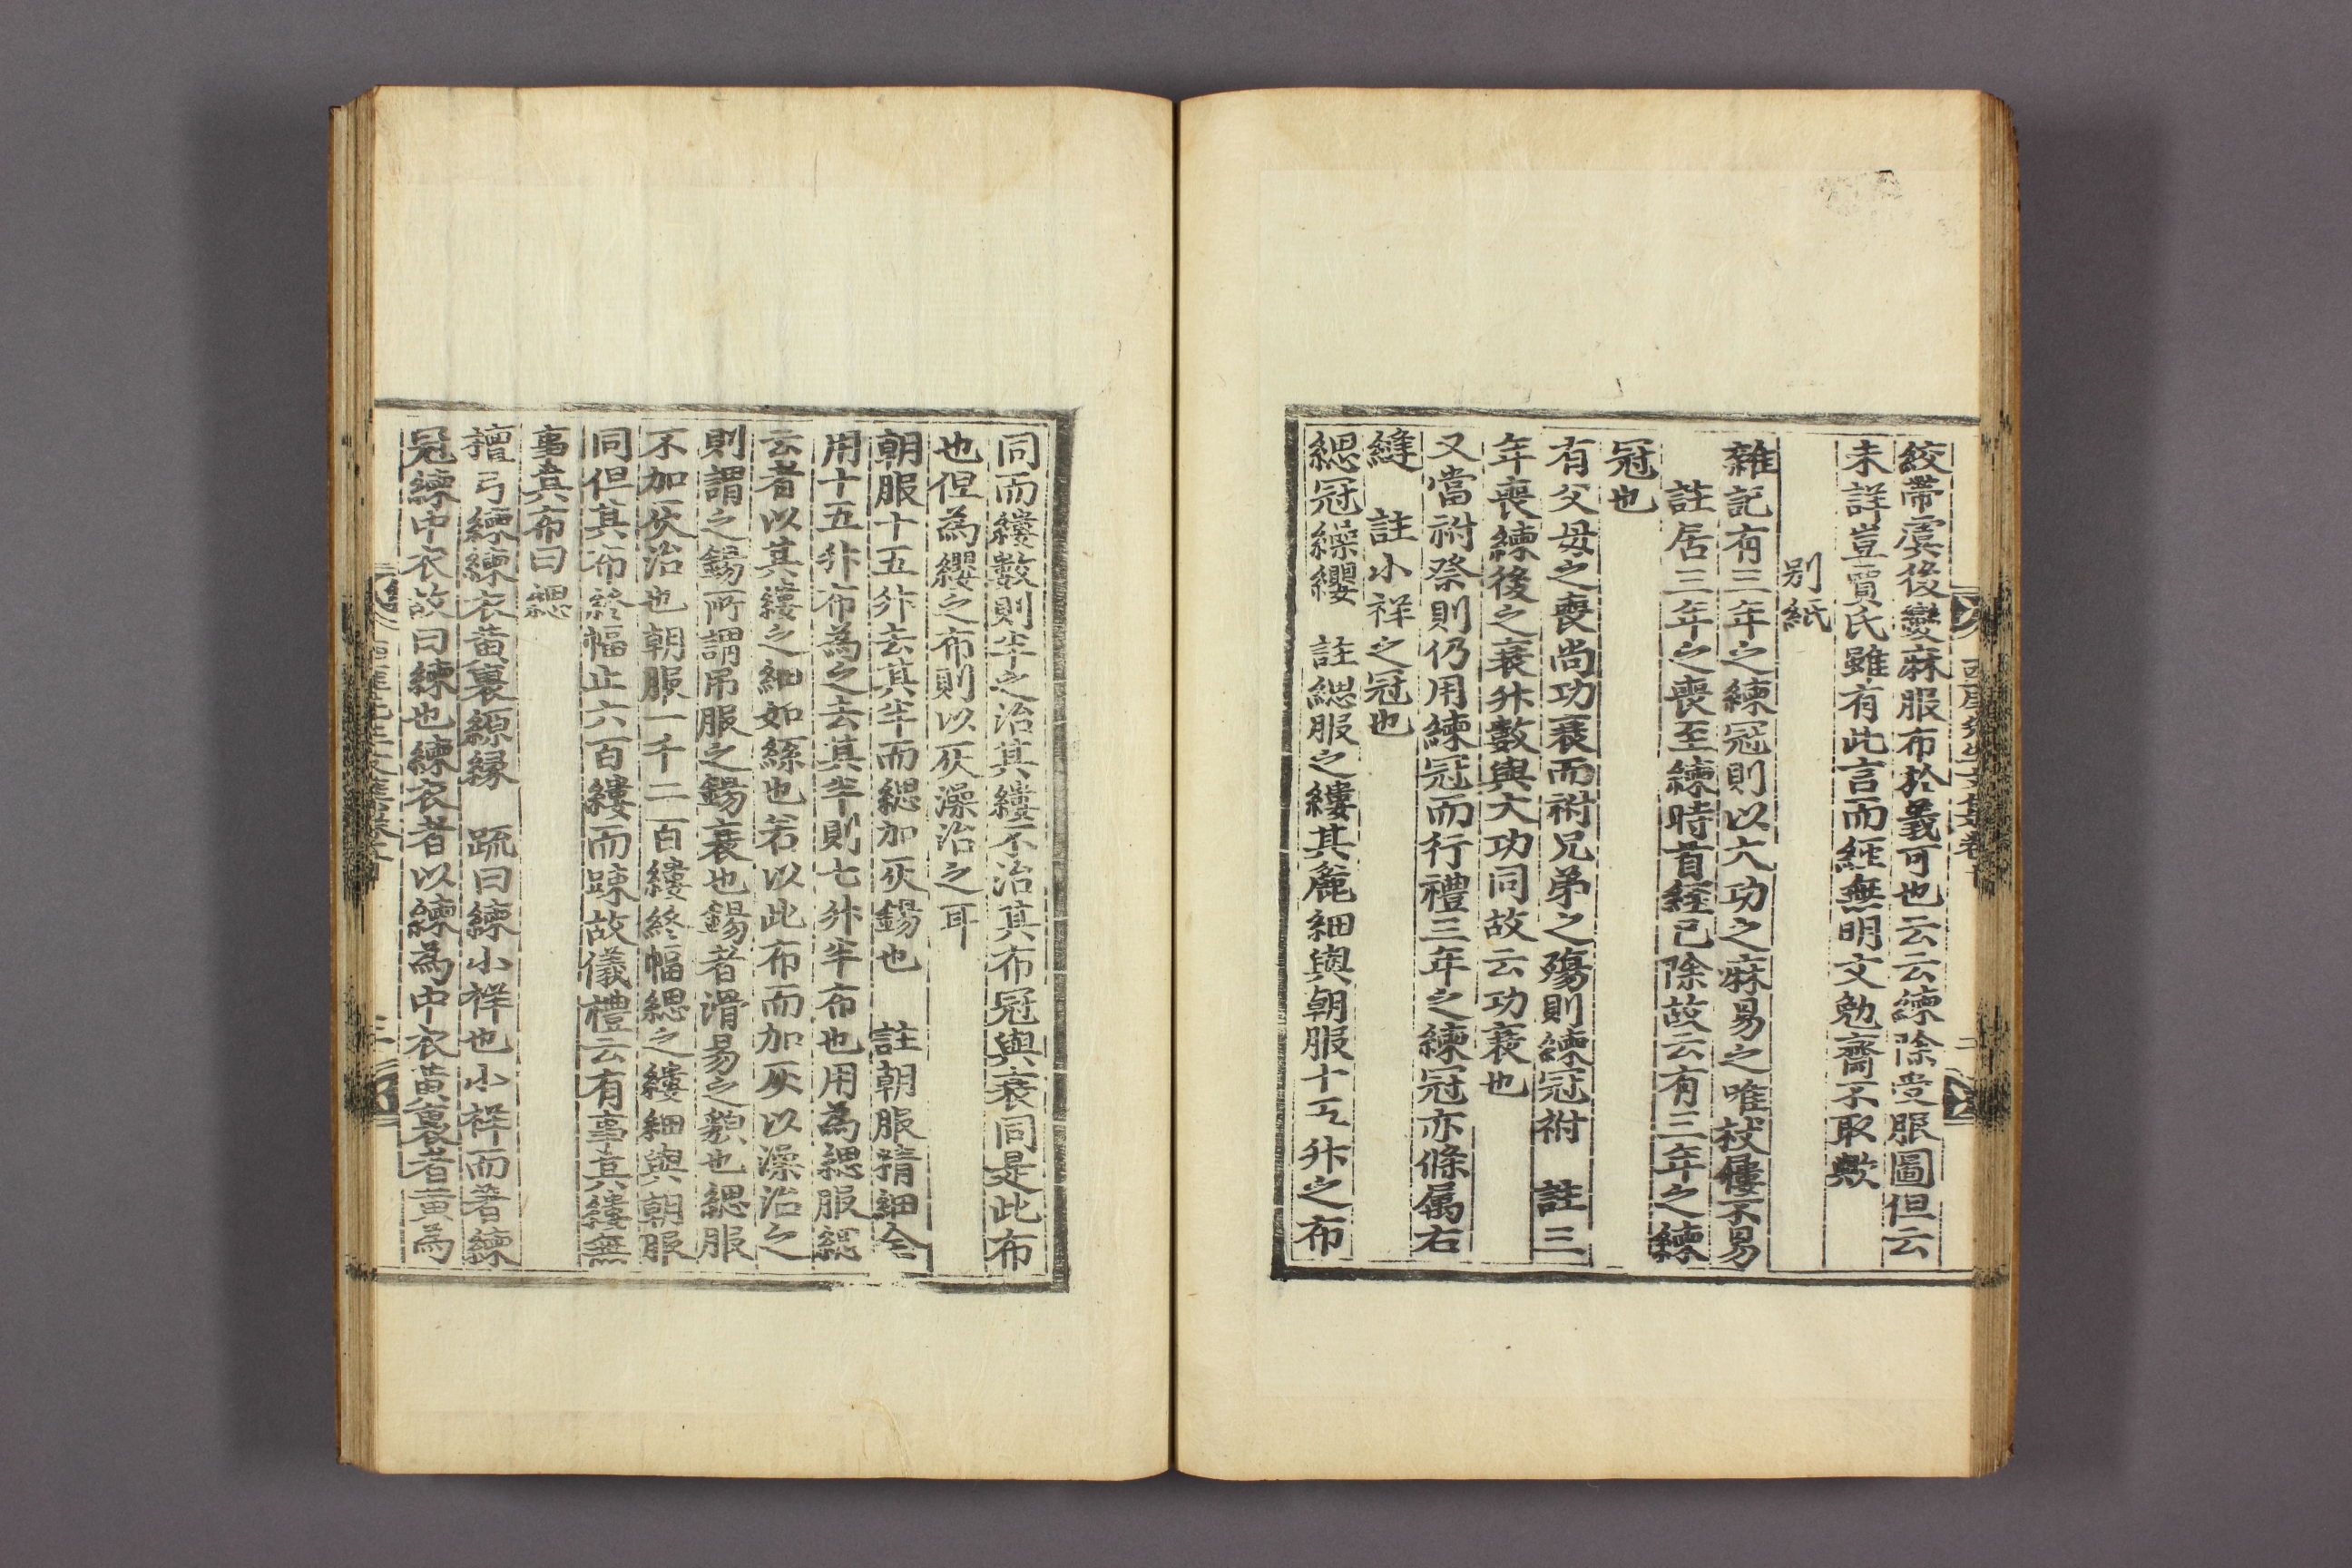 絞帶虞後變麻服布於義可也云云練除受服圖但云
未詳豈賈氏雖有此言而經無明文勉齋不取歟
別紙
雜記有三年之練冠則以大功之麻易之唯杖屨不易
註居三年之喪至練時首絰已除故云有三年之練
冠也
有父母之喪尚功衰而祔兄弟之殤則練冠祔 註三
年喪練後之衰升數與大功同故云功衰也
又當祔祭則仍用練冠而行禮三年之練冠亦條属右
縫 註小祥之冠也
緦冠繰纓 註緦服之縷其麁細與朝服十五升之布
同而縷數則半之治其縷不治其布冠與衰同是此布
也但為纓之布則以灰澡治之耳
朝服十五升去其半而緦加灰錫也 註朝服精細全
用十五升布為之去其半則七升半布也用為緦服緦
云者以其縷之細如絲也若以此布而加灰以澡治之
則謂之錫所謂吊服之錫衰也錫者滑易之貌也緦服
不加灰治也朝服一千二百縷終幅緦之縷細與朝服
同但其布終幅止六百縷而踈故儀禮云有事其縷無
事其布曰緦
檀弓練練衣黃裏縓緣 疏曰練小祥也小祥而著練
冠練中衣故曰練也練衣者以練為中衣黃裏者黃為